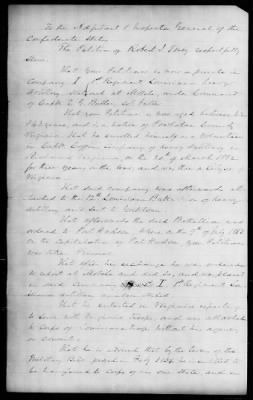 To the Adjutant & Inspector General of the
Confederate States
The Petition of Robert I. respectfully
Shews
That your Petitioner is now a private in
Company I 1st Regiment Louisiana heavy
Artillery stationed at Mobile, under Command
of Capt
That your Petitioner is now aged between
and is a native of County
Virginia That he enlisted himself as a Volunteer
in Capt Company of heavy Artillery
at Virginia, on the 20th of March 1862
for three years or the war, and was then a citizen of
Virginia
That said company was afterwards at-
tached to the 12th Louisiana Battalion of heavy
Artillery and sent to
That afterwards the said Battalion was
ordered to Port Hudson where on the 9th of July 1863
on the Capitulation of Port Hudson your Petitioner
was taken Prisoner
That after his exchange he was ordered
to report at Mobile and did so, and was placed
in said Company I 1st Regiment Lou-
isiana Artillery
That he enlisted in Virginia expecting
to serve with Virginia Troops, and was attached
to Corps of Louisiana troops without his agency
or consent
That he is advised that by the terms of the
Military Bill passed in Feby 1864 he is entitled to
be transferred to Corps of his own State, and in